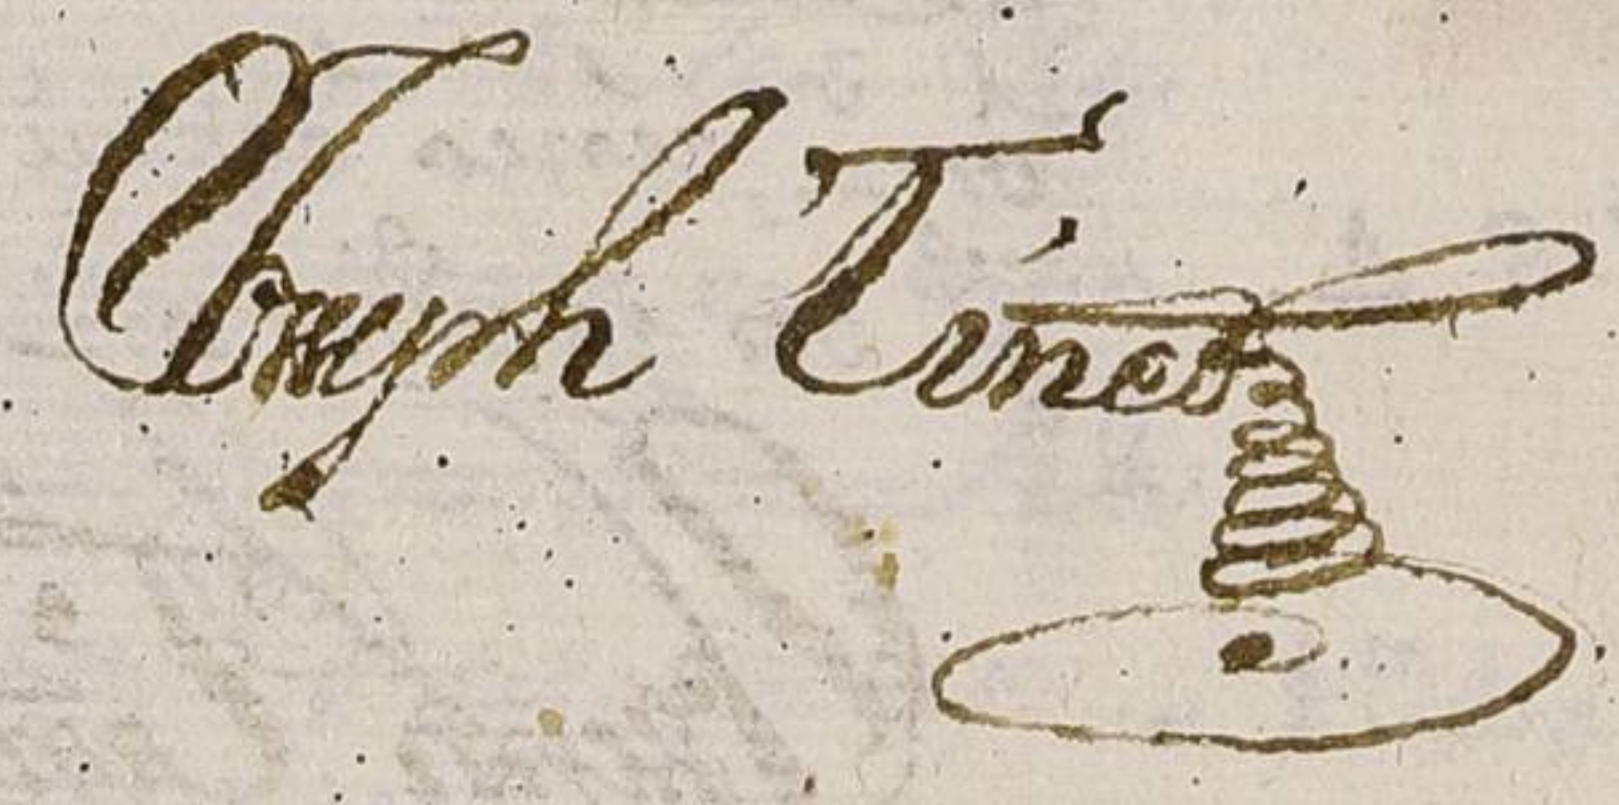 Joseph Tineo